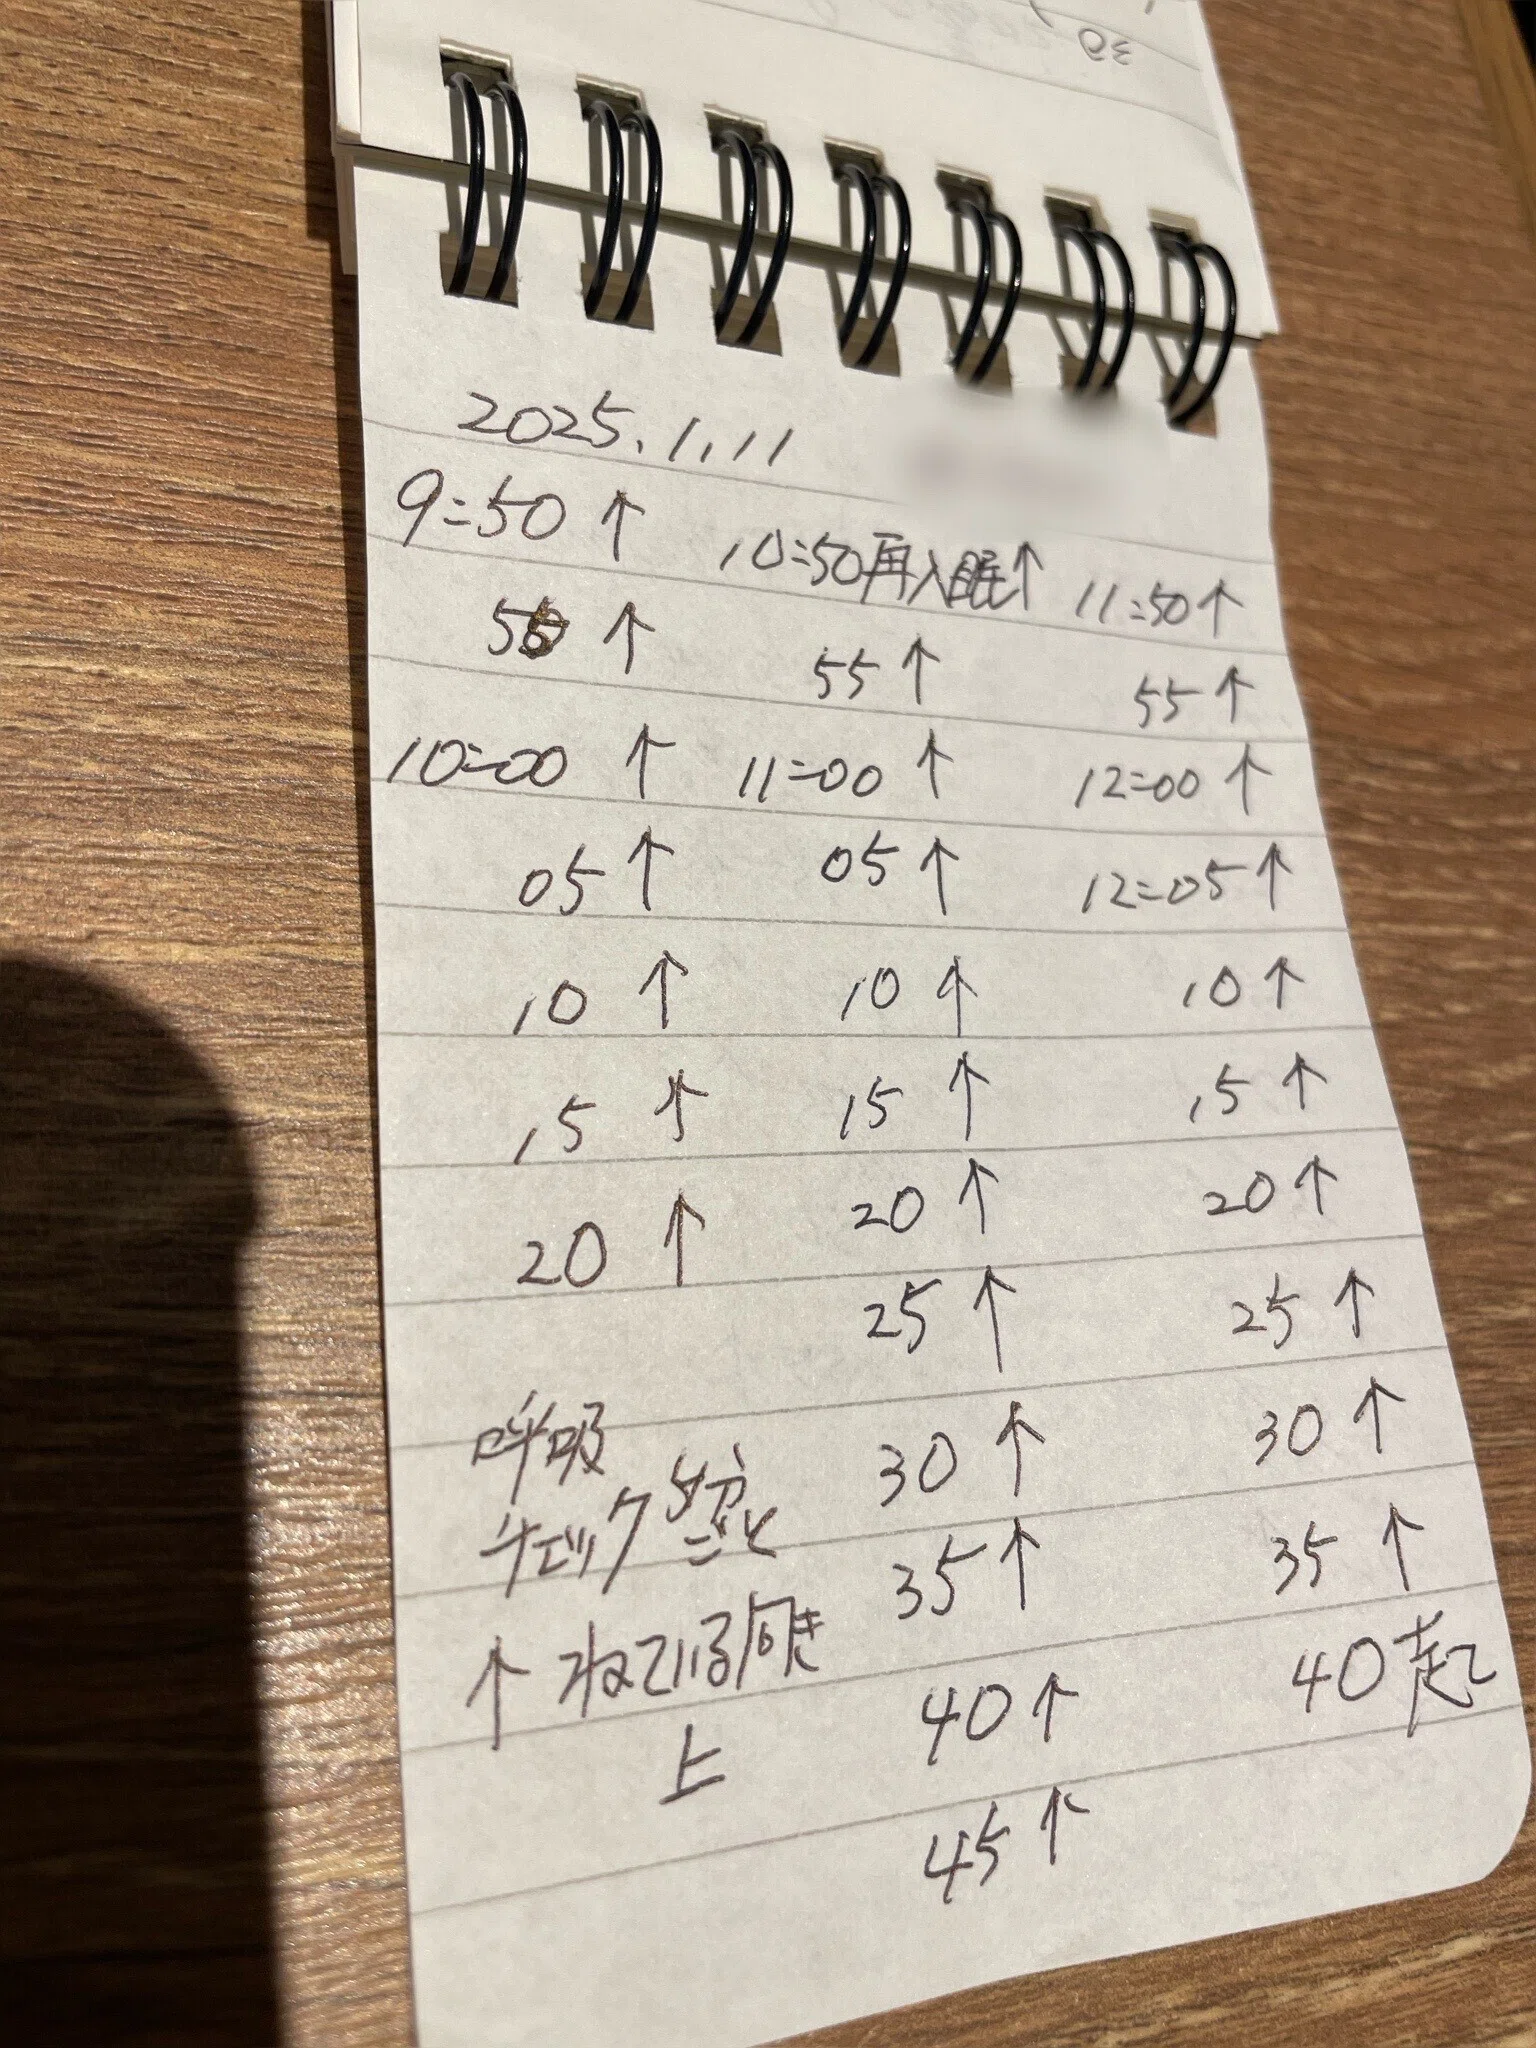 2025.1.11
9:50 ↑
55 ↑
10:00 ↑
05 ↑
10 ↑
15 ↑
20 ↑
呼吸
チェック 5分ごと
↑ ねている向き
上
10:50再入眠↑
55 ↑
11:00 ↑
05 ↑
10 ↑
15 ↑
20 ↑
25 ↑
30 ↑
35 ↑
40 ↑
45 ↑
11:50 ↑
55 ↑
12:00 ↑
12:05 ↑
10 ↑
15 ↑
20 ↑
25 ↑
30 ↑
35 ↑
40 起